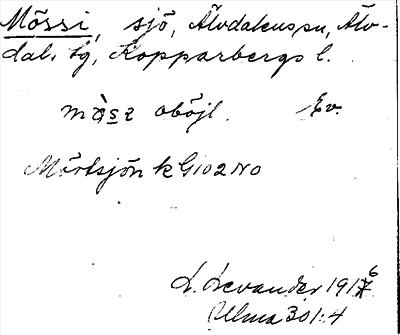 Mössi, sjö, Älvdalens sn, Älv-
dals tg, Kopparbergs l.
mɑ̀sɪ oböjl. Ev.
Mörtsjön k G102 NO
L. Levander 1916
Ulma 301:4